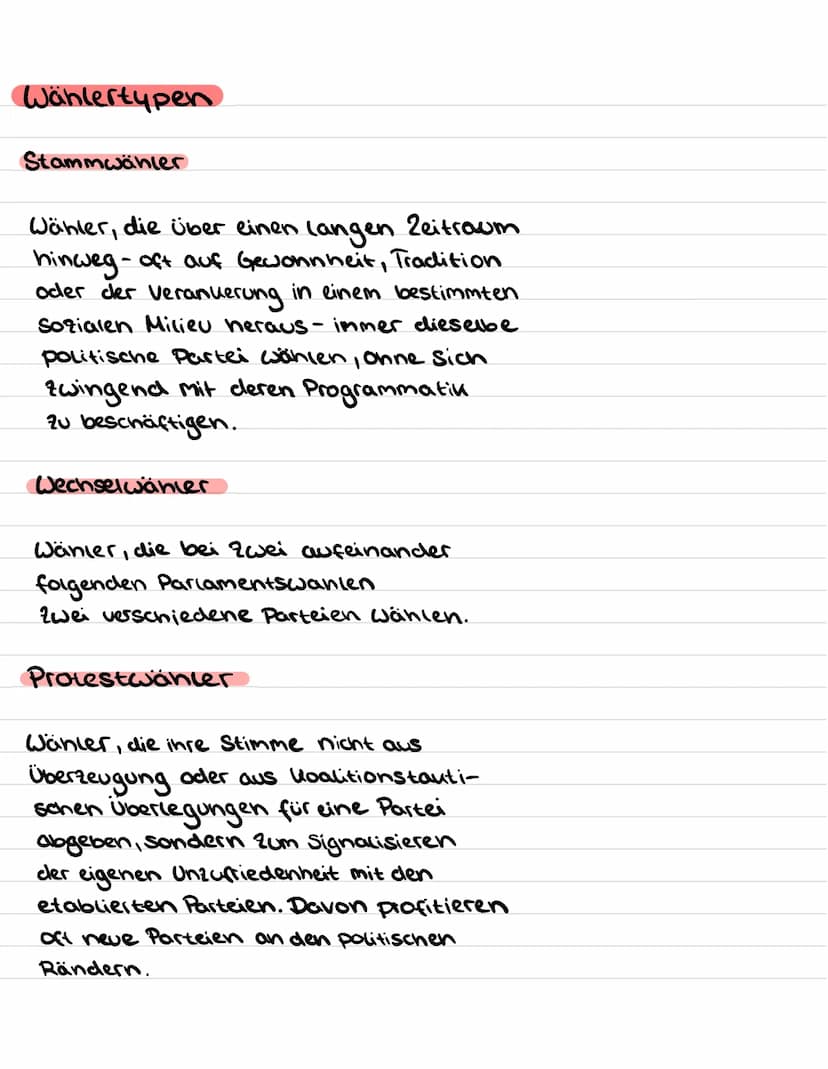 Wählertypen
Stammwähler
Wähler, die über einen langen Zeitraum
hinweg - oft auf Gewohnheit, Tradition
oder der Verankerung in einem bestimmten
sozialen Milieu heraus - immer dieselbe
politische Partei wählen, ohne sich
zwingend mit deren Programmatik
zu beschäftigen.
Wechselwähler
Wähler, die bei zwei aufeinander
folgenden Parlamentswahlen
zwei verschiedene Parteien wählen.
Protestwähler
Wähler, die ihre Stimme nicht aus
Überzeugung oder aus Koalitionstakti-
schen Überlegungen für eine Partei
abgeben, sondern zum Signalisieren
der eigenen Unzufriedenheit mit den
etablierten Parteien. Davon profitieren
oft neue Parteien an den politischen
Rändern.